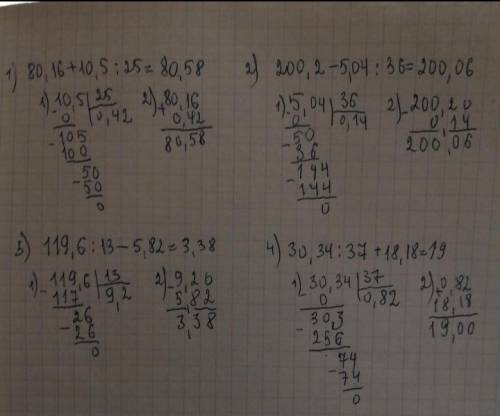 1) 80,16+10,5:25=80,58
1) 10,5 | 25
- 0 | 0,42
- 105
100
- 50
50
0
2) 80,16
+ 0,42
80,58
2) 200,2-5,04:36=200,06
1) 5,04 | 36
- 0 | 0,14
- 50
36
- 144
144
0
2) - 200,20
0,14
200,06
3) 119,6:13-5,82=3,38
1) - 119,6 | 13
117 | 9,2
- 26
26
0
2) - 9,20
5,82
3,38
4) 30,34:37+18,18=19
1) - 30,34 | 37
0 | 0,82
- 303
256
- 74
74
0
2) + 0,82
18,18
19,00